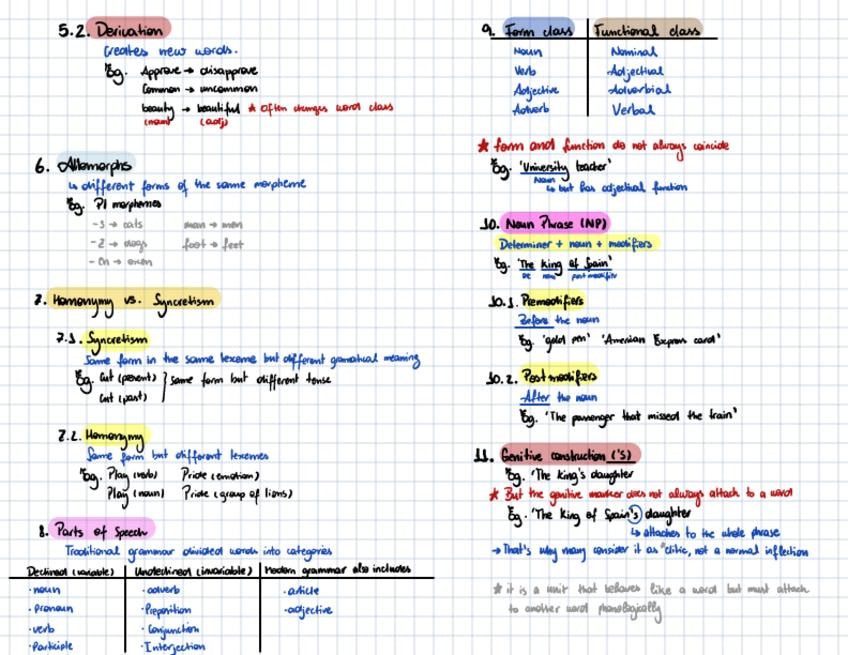 5.2. Derivation
Creates new words.
Eg. Approve → disapprove
Common → uncommon
beauty → beautiful * Often changes word class
(noun) (adj)
6. Allomorphs
↳ different forms of the same morpheme
Eg. Pl morphemes
-s → cats man → men
-z → dogs foot → feet
-en → oxen
7. Homonymy vs. Syncretism
7.1. Syncretism
Same form in the same lexeme but different gramatical meaning
Eg. Cut (present) } same form but different tense
Cut (past)
7.2. Homonymy
Same form but different lexemes
Eg. Play (verb) Pride (emotion)
Play (noun) Pride (group of lions)
8. Parts of Speech
Traditional grammar divided words into categories
Declined (variable) Undeclined (invariable) Modern grammar also includes
· noun · adverb · article
· Pronoun · Preposition · adjective
· verb · Conjunction
· Participle · Interjection
9. Form class Functional class
Noun Nominal
Verb Adjectival
Adjective Adverbial
Adverb Verbal
* form and function do not always coincide
Eg. 'University teacher'
Noun
↳ but has adjectival function
10. Noun Phrase (NP)
Determiner + noun + modifiers
Eg. 'The King of Spain'
Det noun postmodifier
10.1. Premodifiers
Before the noun
Eg. 'gold pen' 'American Express card'
10.2. Postmodifiers
After the noun
Eg. 'The passenger that missed the train'
11. Genitive construction ('s)
Eg. 'The king's daughter
* But the genitive marker does not always attach to a word
Eg. 'The king of Spain's daughter
↳ attaches to the whole phrase
→ That's why many consider it as *clitic, not a normal inflection
* it is a unit that behaves like a word but must attach
to another word phonologically